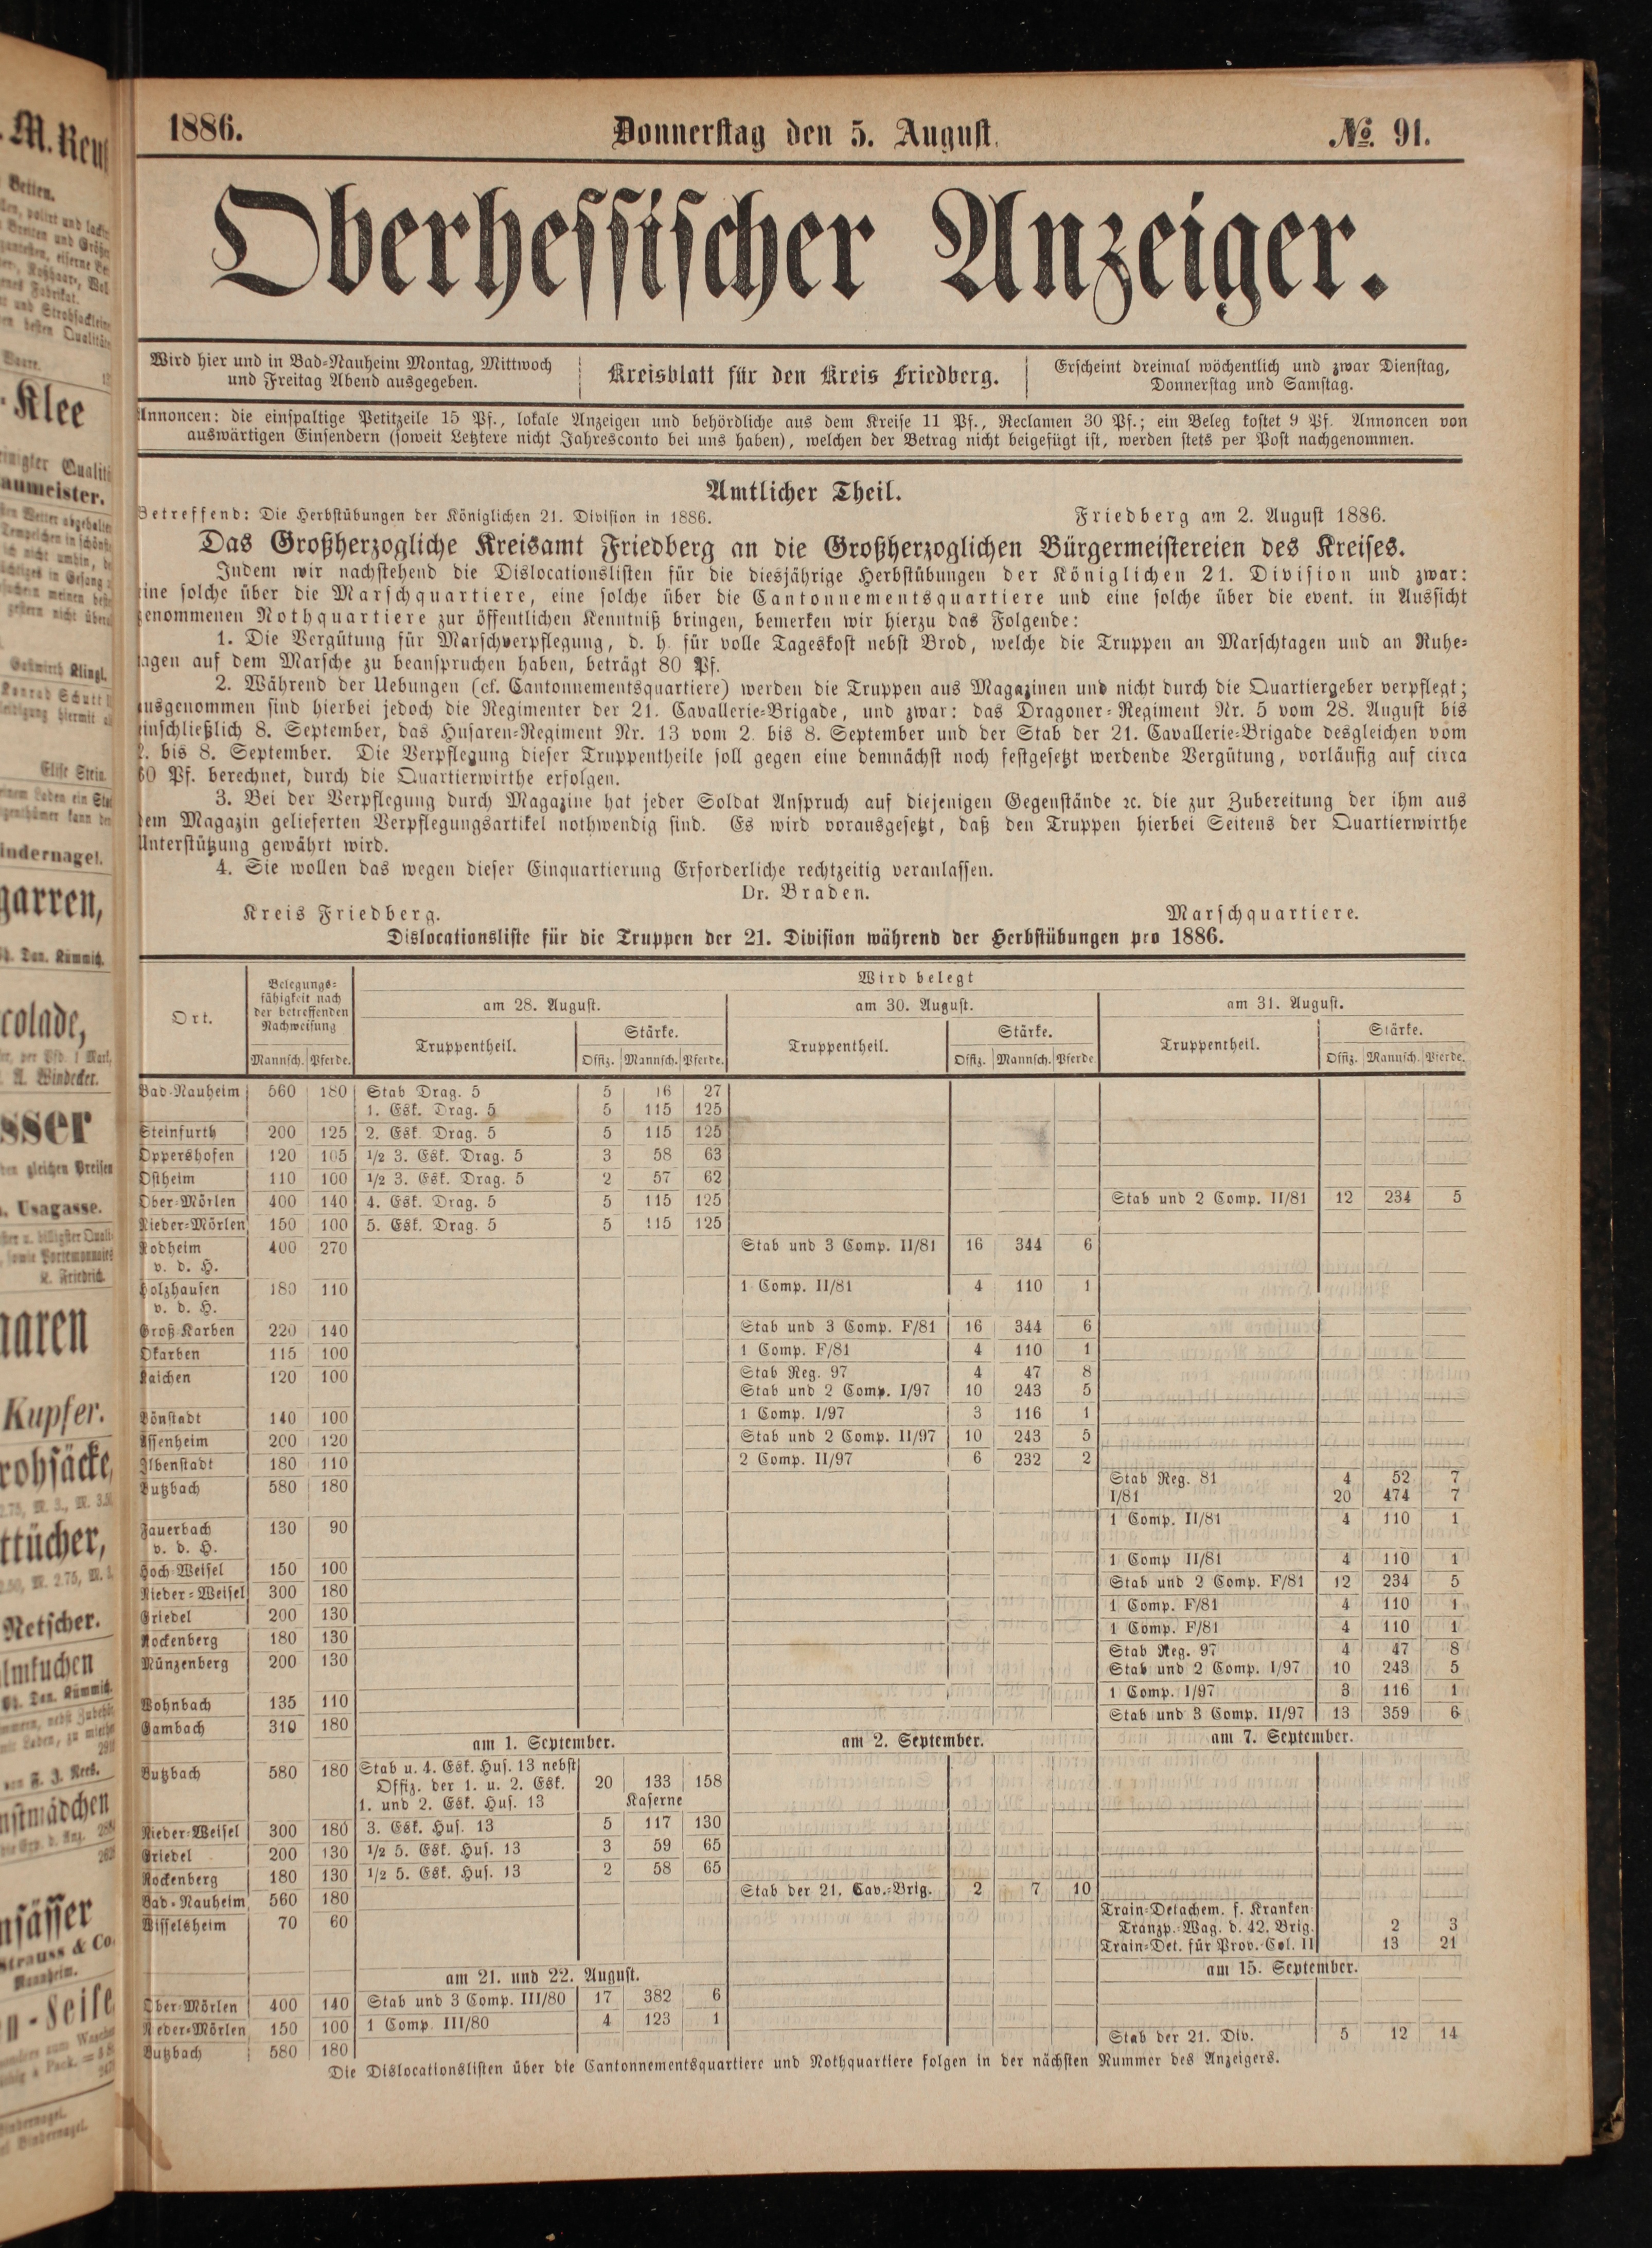 1886. Donnerstag den 5. August. No. 91.
Oberhessischer Anzeiger.
Wird hier und in Bad-Nauheim Montag, Mittwoch
und Freitag Abend ausgegeben.
Kreisblatt für den Kreis Friedberg.
Erscheint dreimal wöchentlich und zwar Dienstag,
Donnerstag und Samstag.
Annoncen: die einspaltige Petitzeile 15 Pf., lokale Anzeigen und behördliche aus dem Kreise 11 Pf., Reclamen 30 Pf.; ein Beleg kostet 9 Pf. Annoncen von
auswärtigen Einsendern (soweit Letztere nicht Jahresconto bei uns haben), welchen der Betrag nicht beigefügt ist, werden stets per Post nachgenommen.
Amtlicher Theil.
Betreffend: Die Herbstübungen der Königlichen 21. Division in 1886. Friedberg am 2. August 1886.
Das Großherzogliche Kreisamt Friedberg an die Großherzoglichen Bürgermeistereien des Kreises.
Indem wir nachstehend die Dislocationslisten für die diesjährige Herbstübungen der Königlichen 21. Division und zwar:
eine solche über die Marschquartiere, eine solche über die Cantonnementsquartiere und eine solche über die event. in Aussicht
genommenen Nothquartiere zur öffentlichen Kenntniß bringen, bemerken wir hierzu das Folgende:
1. Die Vergütung für Marschverpflegung, d. h. für volle Tageskost nebst Brod, welche die Truppen an Marschtagen und an Ruhe-
tagen auf dem Marsche zu beanspruchen haben, beträgt 80 Pf.
2. Während der Uebungen (cf. Cantonnementsquartiere) werden die Truppen aus Magazinen und nicht durch die Quartiergeber verpflegt;
ausgenommen sind hierbei jedoch die Regimenter der 21. Cavallerie-Brigade, und zwar: das Dragoner-Regiment Nr. 5 vom 28. August bis
einschließlich 8. September, das Husaren-Regiment Nr. 13 vom 2. bis 8. September und der Stab der 21. Cavallerie-Brigade desgleichen vom
2. bis 8. September. Die Verpflegung dieser Truppentheile soll gegen eine demnächst noch festgesetzt werdende Vergütung, vorläufig auf circa
60 Pf. berechnet, durch die Quartierwirthe erfolgen.
3. Bei der Verpflegung durch Magazine hat jeder Soldat Anspruch auf diejenigen Gegenstände ꝛc. die zur Zubereitung der ihm aus
dem Magazin gelieferten Verpflegungsartikel nothwendig sind. Es wird vorausgesetzt, daß den Truppen hierbei Seitens der Quartierwirthe
Unterstützung gewährt wird.
4. Sie wollen das wegen dieser Einquartierung Erforderliche rechtzeitig veranlassen.
Dr. Braden.
Kreis Friedberg. Marschquartiere.
Dislocationsliste für die Truppen der 21. Division während der Herbstübungen pro 1886.
Ort. Belegungs-
fähigkeit nach
der betreffenden
Nachweisung
Mannsch. Pferde.
Wird belegt
am 28. August. am 30. August. am 31. August.
Truppentheil. Stärke. Truppentheil. Stärke. Truppentheil. Stärke.
Offiz. Mannsch. Pferde. Offiz. Mannsch. Pferde Offiz. Mannsch. Pferde.
Bad-Nauheim 560 180 Stab Drag. 5 5 16 27
1. Esk. Drag. 5 5 115 125
Steinfurth 200 125 2. Esk. Drag. 5 5 115 125
Oppershofen 120 105 1/2 3. Esk. Drag. 5 3 58 63
Ostheim 110 100 1/2 3. Esk. Drag. 5 2 57 62
Ober-Mörlen 400 140 4. Esk. Drag. 5 5 115 125 Stab und 2 Comp. II/81 12 234 5
Nieder-Mörlen 150 100 5. Esk. Drag. 5 5 115 125
Rodheim 400 270 Stab und 3 Comp. II/81 16 344 6
v. d. H.
Holzhausen 180 110 1 Comp. II/81 4 110 1
v. d. H.
Groß-Karben 220 140 Stab und 3 Comp. F/81 16 344 6
Okarben 115 100 1 Comp. F/81 4 110 1
Kaichen 120 100 Stab Reg. 97 4 47 8
Stab und 2 Comp. I/97 10 243 5
Bönstadt 140 100 1 Comp. I/97 3 116 1
Assenheim 200 120 Stab und 2 Comp. II/97 10 243 5
Ilbenstadt 180 110 2 Comp. II/97 6 232 2
Butzbach 580 180 Stab Reg. 81 4 52 7
I/81 20 474 7
Fauerbach 130 90 1 Comp. II/81 4 110 1
v. d. H.
Hoch-Weisel 150 100 1 Comp II/81 4 110 1
Nieder-Weisel 300 180 Stab und 2 Comp. F/81 12 234 5
Griedel 200 130 1 Comp. F/81 4 110 1
Rockenberg 180 130 1 Comp. F/81 4 110 1
Münzenberg 200 130 Stab Reg. 97 4 47 8
Stab und 2 Comp. I/97 10 243 5
Wohnbach 135 110 1 Comp. I/97 3 116 1
Gambach 310 180 Stab und 3 Comp. II/97 13 359 6
am 1. September. am 2. September. am 7. September.
Butzbach 580 180 Stab u. 4. Esk. Hus. 13 nebst
Offiz. der 1. u. 2. Esk. 20 133 158
1. und 2. Esk. Hus. 13 Kaserne
Nieder-Weisel 300 180 3. Esk. Hus. 13 5 117 130
Griedel 200 130 1/2 5. Esk. Hus. 13 3 59 65
Rockenberg 180 130 1/2 5. Esk. Hus. 13 2 58 65
Bad-Nauheim 560 180 Stab der 21. Cav.-Brig. 2 7 10
Wisselsheim 70 60 Train-Detachem. f. Kranken-
Tranzp.-Wag. d. 42. Brig. 2 3
Train-Det. für Prov.-Col. II 13 21
am 21. und 22. August. am 15. September.
Ober-Mörlen 400 140 Stab und 3 Comp. III/80 17 382 6
Nieder-Mörlen 150 100 1 Comp. III/80 4 123 1
Butzbach 580 180 Stab der 21. Div. 5 12 14
Die Dislocationslisten über die Cantonnementsquartiere und Nothquartiere folgen in der nächsten Nummer des Anzeigers.